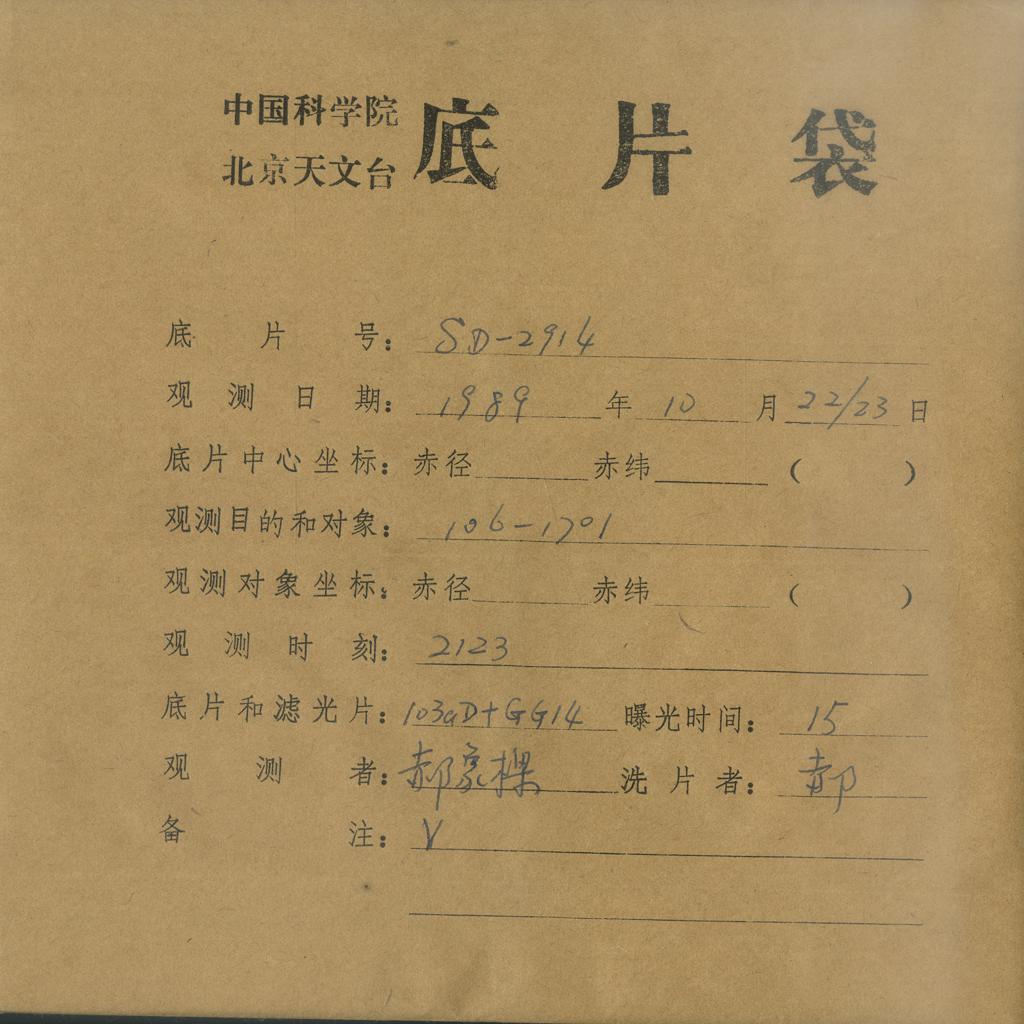 中国科学院
北京天文台
底片袋
底片号： SD-2914
观测日期： 1989 年 10 月 22/23 日
底片中心坐标：赤径 赤纬 （ ）
观测目的和对象： 106-1701
观测对象坐标：赤径 赤纬 （ ）
观测时刻： 2123
底片和滤光片：103aD+GG14 曝光时间： 15
观测者：郝象樑 洗片者： 郝
备注： V